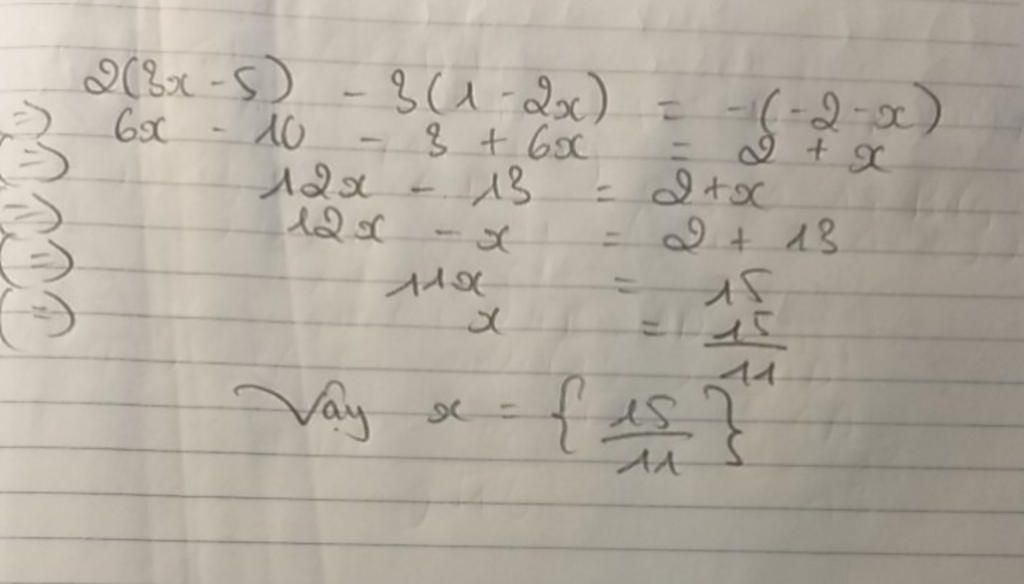 2(3x - 5) - 3(1 - 2x) = -(-2 - x)
(=) 6x - 10 - 3 + 6x = 2 + x
(=) 12x - 13 = 2 + x
(=) 12x - x = 2 + 13
(=) 11x = 15
(=) x = 15/11
Vậy x = { 15/11 }